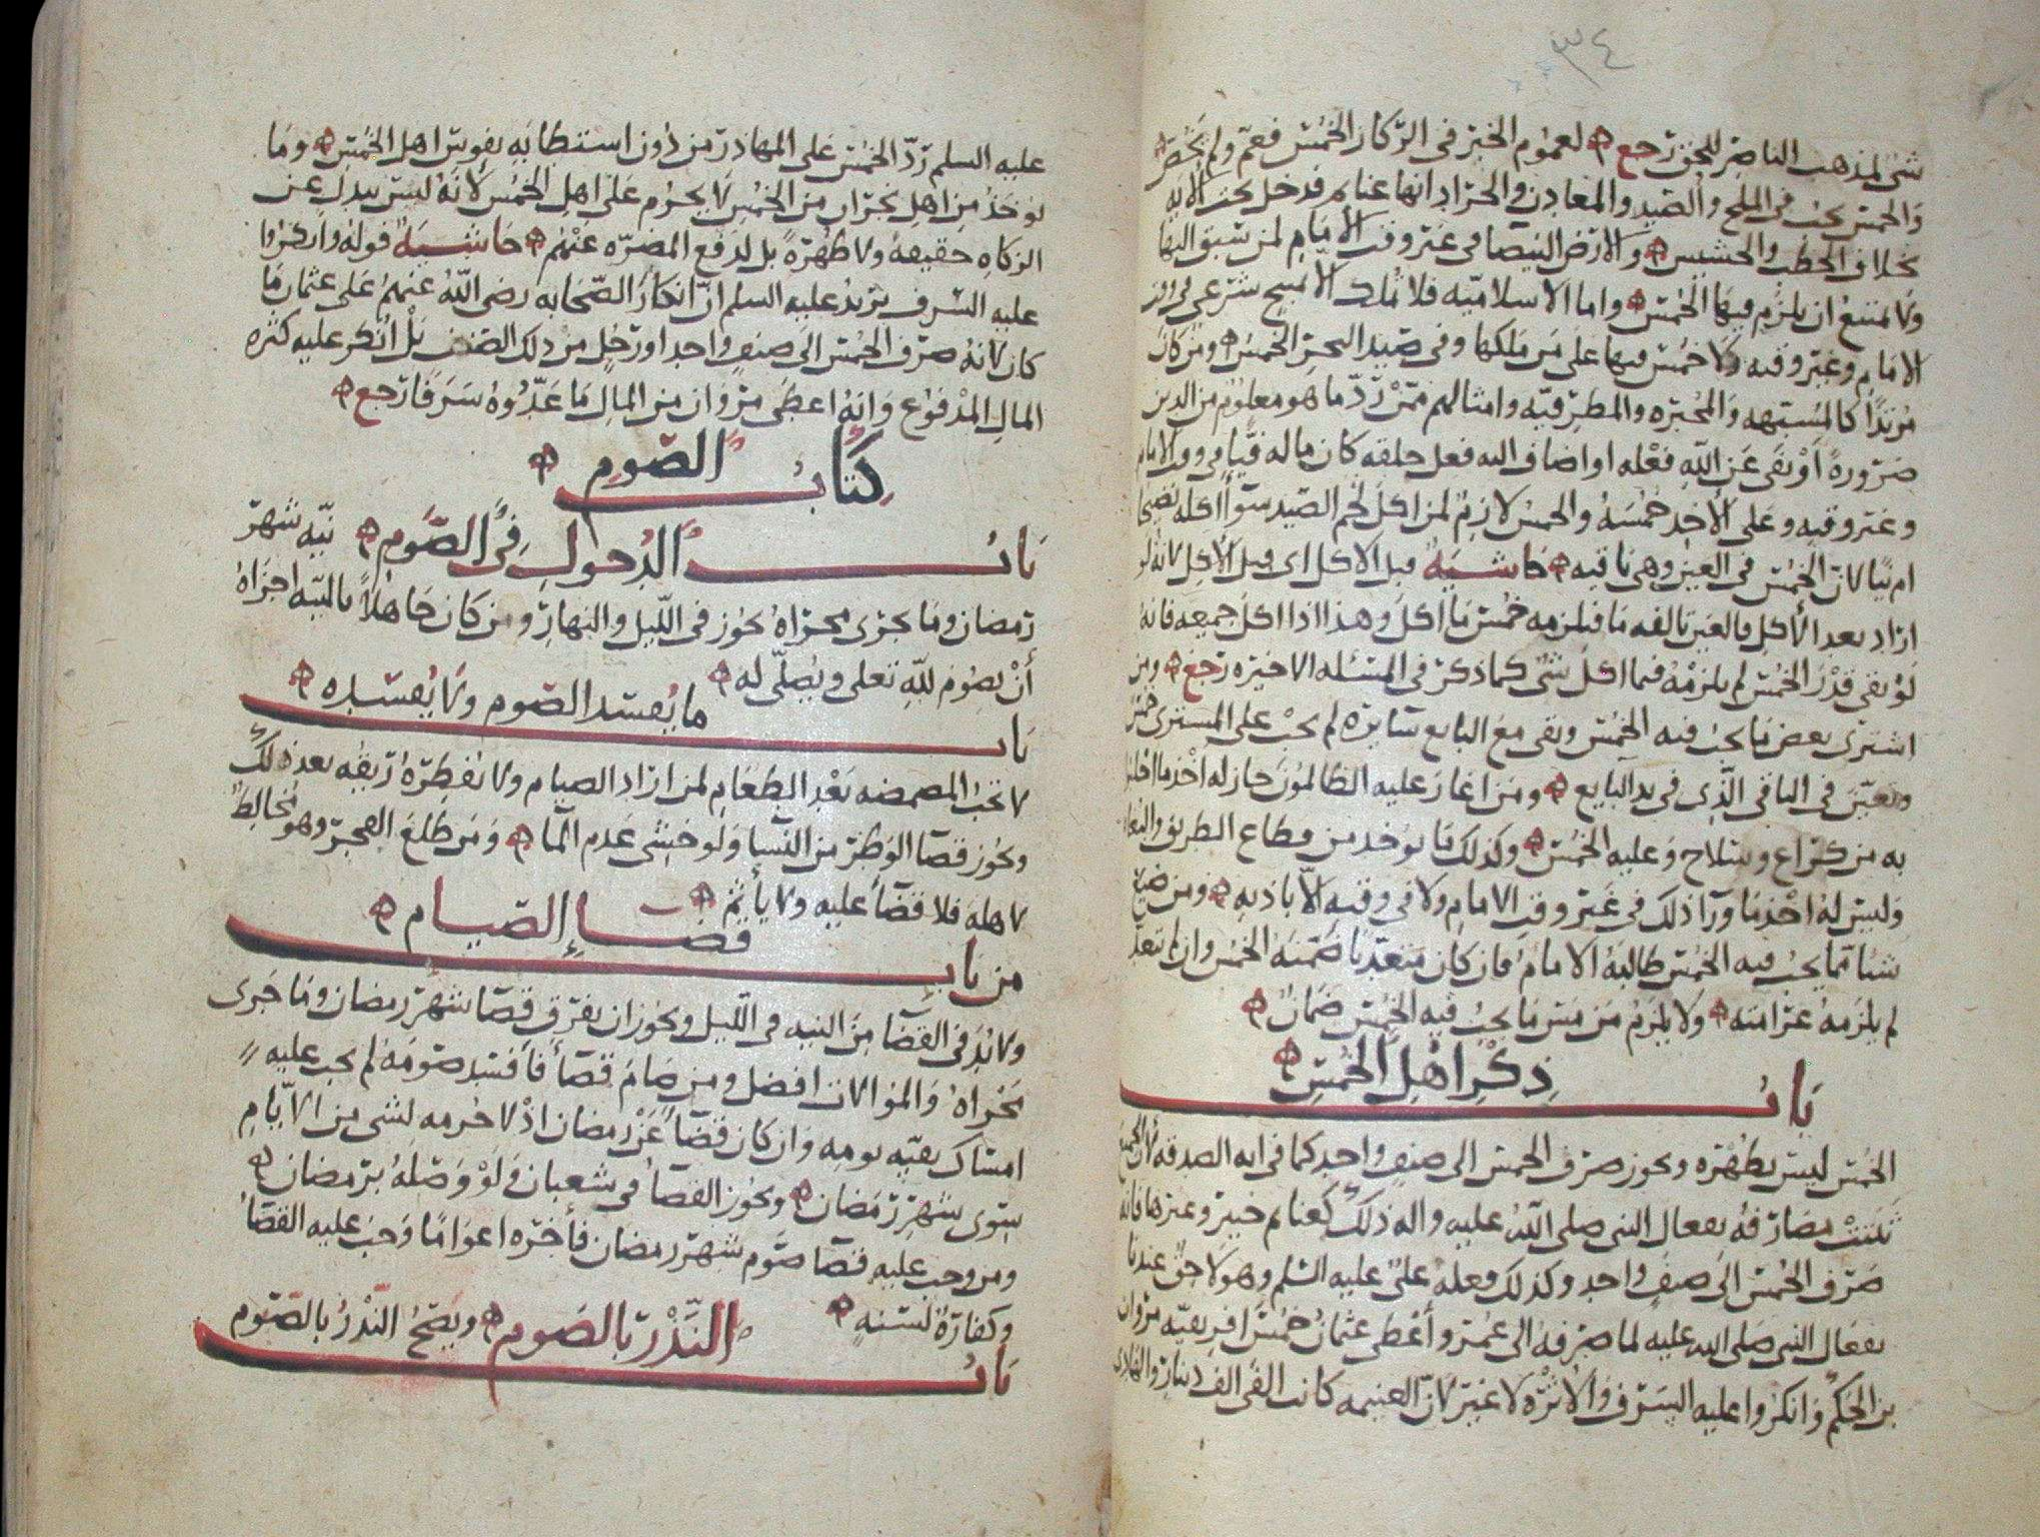 ٣٤
شى لمذهب الناصر للحق رجع لعموم الخبر فى الركاز الخمس فعم ولم يخص
والخمس يجب فى الملح والصيد والمعادن والحراد انها غنايم فدخل تحت الايه
بخلاف الحطب والحشيش والارض البيضا فى غير وقت الأمام لمن سبق اليها
ولا يمتنع ان يلزم فيها الخمس واما الاسلاميه فلا تملك الا لمبيح شرعى فى زمن
الامام وغير وقته ولا خمس فيها على من ملكها وفى صيد البحر الخمس ومن كان
مرتدا كالمشبهه والمجبره والمطرفيه وامثالهم ممن رد ما هو معلوم من الدين
ضرورة او نفى عن الله فعله او اضاف اليه فعل خلقه كان ماله فيا فى وقت الامام
وغير وقته وعلى الأخذ خمسه والخمس لازم لمن اكل لحم الصيد سوا اكله نضيجا
ام نيا لان الخمس فى العين وهى باقيه حاشيه قبل الاكل اى قبل الأكل لانه لو
اراد بعد الأكل فالعين تالفه فيلزمه خمس ما اكل وهذا اذا اكل جميعه فانه
لو بقى قدر الخمس لم يلزمه فيما اكل شى كما ذكر فى المسئله الاخيره رجع ومن
اشترى بعض ما يجب فيه الخمس وبقى مع البايع سايره لم يجب على المشترى خمس
وتعين فى الباقى الذى فى يد البايع ومن اغار عليه الظالمون جاز له اخذ ما
به من كراع وسلاح وعليه الخمس وكذلك ما يوخذ من قطاع الطريق والبغاه
وليس له اخذ ما ورآ ذلك فى غير وقت الامام ولا فى وقته الا باذنه ومن ضيع
شيا مما يجب فيه الخمس طالبه الامام فان كان متعديا ضمنه الخمس وان لم يتعد
لم يلزمه غرامته ولا يلزم من مس ما يجب فيه الخمس ضمان
باب ذكر اهل الخمس
الخمس ليس بطهره ويجوز صرف الخمس الى صنف واحد كما فى ايه الصدقه لأن الخمس
ثبتت مصارفه بفعال النبى صلى الله عليه واله ذلك كغنايم خيبر وغيرها فانه
صرف الخمس الى صنف واحد وكذلك فعله على عليه السلم وهو لاحق عندنا
بفعال النبى صلى الله عليه لما صرفه الى عمر وأعطى عثمان خمس افريقيه مروان
بن الحكم وانكروا عليه السرف والأثره لا غير لان الغنيمه كانت الفى الف دينار
عليه السلم رد الخمس على المهاذر من دون استطابه نفوس اهل الخمس وما
يوخذ من اهل نجران من الخمس لا يحرم على اهل الخمس لأنه ليس ببدل عن
الزكاه حقيقه ولا طهرة بل لدفع المضره عنهم حاشيه قوله وانكروا
عليه السرف يريد عليه السلم ان انكار الصحابه رضى الله عنهم على عثمان ما
كان لانه صرف الخمس الى صنف واحد او رجل من ذلك الصنف بل انكر عليه كثره
المال المدفوع وانه اعطى مروان من المال ما عدوه سرفا رجع
كتاب الصوم
باب الدخول فى الصوم نيه شهر
رمضان وما يجرى مجراه يجوز فى الليل والنهار ومن كان جاهلا بالنيه اجزاه
أن يصوم لله تعلى ويصلى له
باب ما يفسد الصوم ولا يفسده
لا تجب المضمضه بعد الطعام لمن اراد الصيام ولا يفطره ريقه بعد ذلك
ويجوز قضا الوطر من النسا ولو خشى عدم الما ومن طلع الفجر وهو مخالط
لاهله فلا قضآ عليه ولا يأثم
من باب قضا الصيام
ولا بد فى القضا من النيه فى الليل ويجوز ان يفرق قضا شهر رمضان وما جرى
مجراه والموالات افضل ومن صام قضآ فافسد صومه لم يجب عليه
امساك بقيه يومه وان كان قضآ عن رمضان اذ لا حرمه لشى من الايام
سوى شهر رمضان ويجوز القضا فى شعبان ولو وصله برمضان
ومن وجب عليه قضا صوم شهر رمضان فأخره اعواما وجب عليه القضا
وكفارة لسنه
باب النذر بالصوم ويصح النذر بالصوم